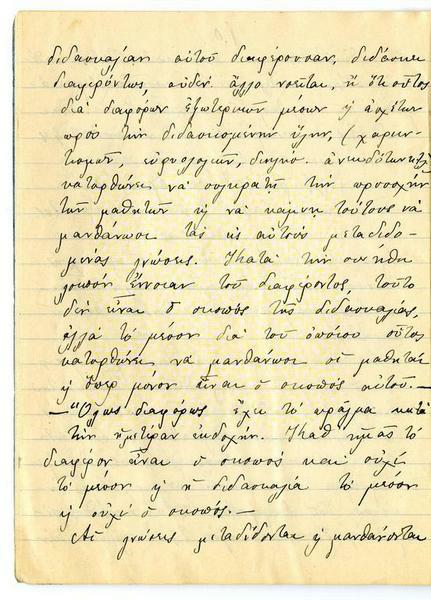 διδασκαλίαν αὐτοῦ διαφέρουσαν, διδάσκει
διαφερόντως, οὐδὲν ἄλλο νοεῖται, ἢ ὅτι οὗτος
διὰ διαφόρων ἐξωτερικῶν μέσων ἢ ἀσχέτων
πρὸς τὴν διδασκομένην ὕλην, (χαριεν-
τισμῶν, εὐφυολογιῶν, διηγήσ. ἀνεκδότων κτλ
κατορθώνει νὰ συγκρατῇ τὴν προσοχὴν
τῶν μαθητῶν ἢ νὰ κάμνῃ τούτους νὰ
μανθάνωσι τὰς εἰς αὐτοὺς μεταδιδο-
μένας γνώσεις. Κατὰ τὴν συνήθη
λοιπὸν ἔννοιαν τοῦ διαφέροντος, τοῦτο
δὲν εἶναι ὁ σκοπὸς τῆς διδασκαλίας,
ἀλλὰ τὸ μέσον διὰ τοῦ ὁποίου οὗτος
κατορθώνει νὰ μανθάνωσι οἱ μαθηταὶ
ἢ ὅπερ μόνον εἶναι ὁ σκοπὸς αὐτοῦ.—
—"Ὅλως διαφόρως ἔχει τὸ πρᾶγμα κατὰ
τὴν ἡμετέραν ἐκδοχήν. Καθ' ἡμᾶς τὸ
διαφέρον εἶναι ὁ σκοπὸς καὶ οὐχὶ
τὸ μέσον ἢ ἡ διδασκαλία τὸ μέσον
ἢ οὐχὶ ὁ σκοπός.—
Αἱ γνώσεις μεταδίδονται ἢ μανθάνονται